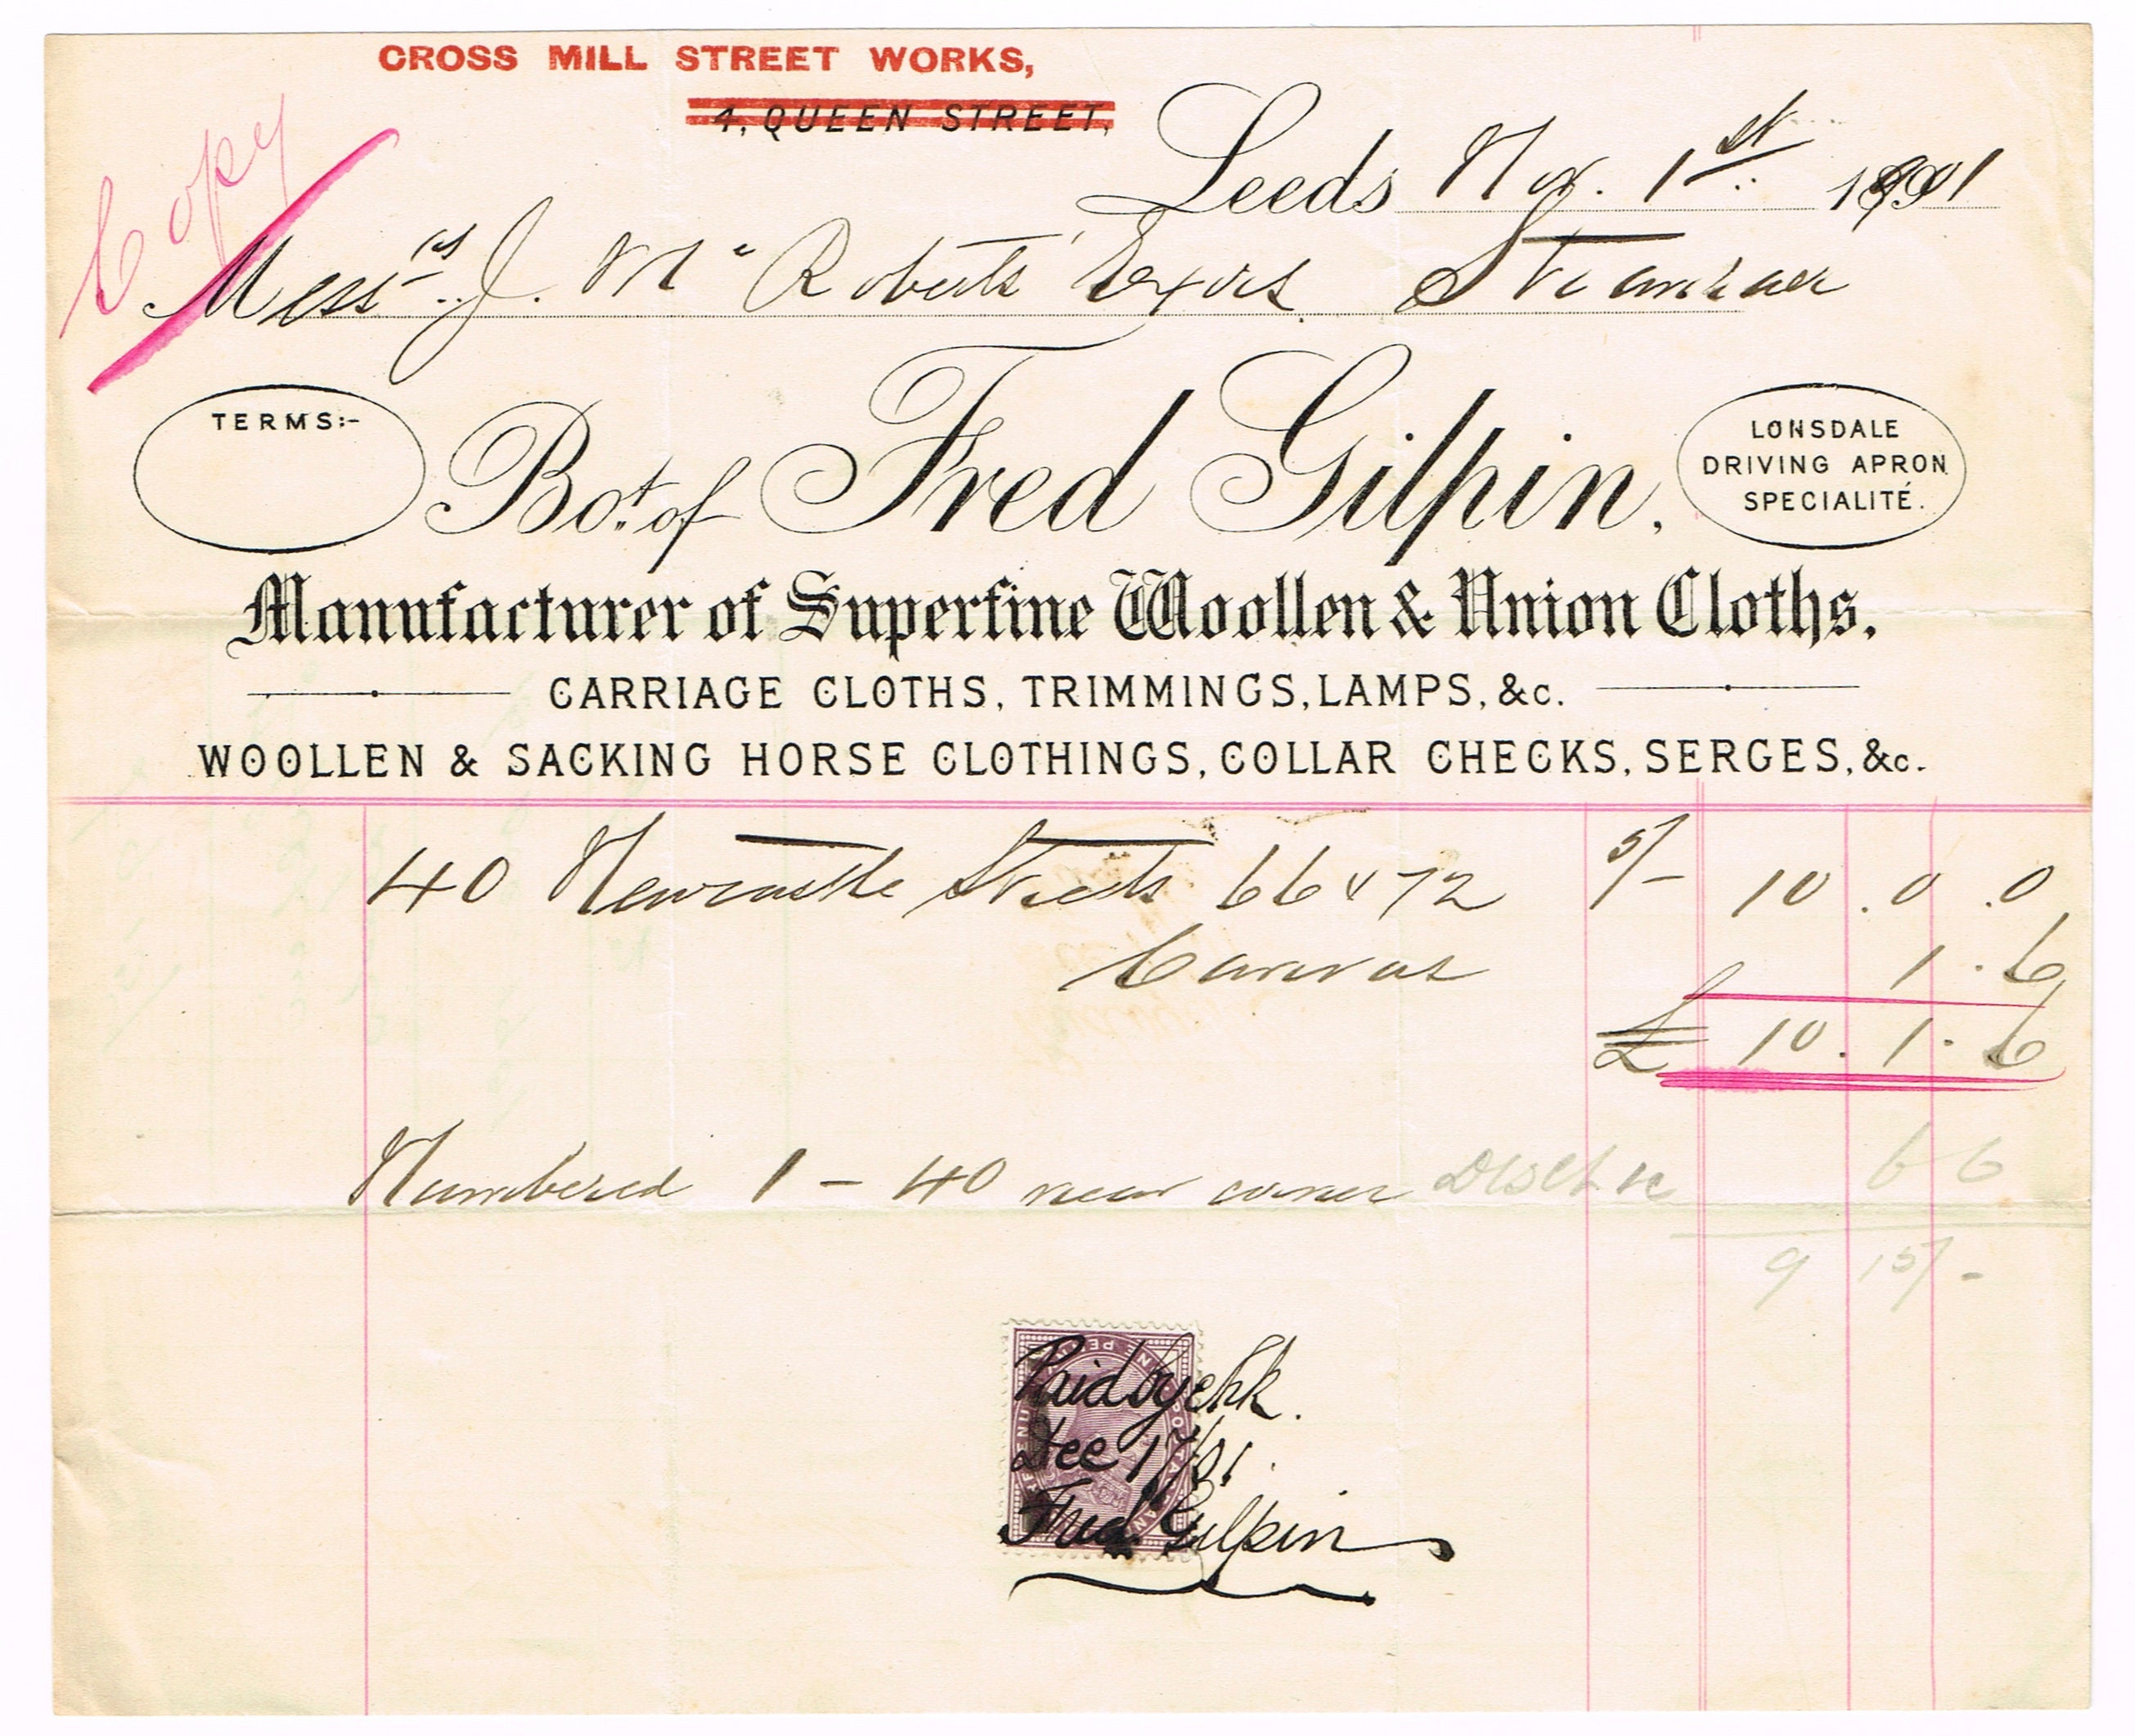 CROSS MILL STREET WORKS,
4, QUEEN STREET,
Copy
Leeds Nov. 1st 1901
Messrs J. Mc Roberts Exors Stranraer
TERMS:-
Bot. of Fred Gilpin.
LONSDALE
DRIVING APRON
SPECIALITÉ.
Manufacturer of Superfine Woollen & Union Cloths.
CARRIAGE CLOTHS, TRIMMINGS, LAMPS, &c.
WOOLLEN & SACKING HORSE CLOTHINGS, COLLAR CHECKS, SERGES, &c.
40 Newcastle Sheets 66 x 72 5/- 10 . 0 . 0
Canvas 1 . 6
£ 10 . 1 . 6
Numbered 1 - 40 near corner Disct 6 6
9 15/-
Paid by chk.
Dec 17/01.
Fred Gilpin